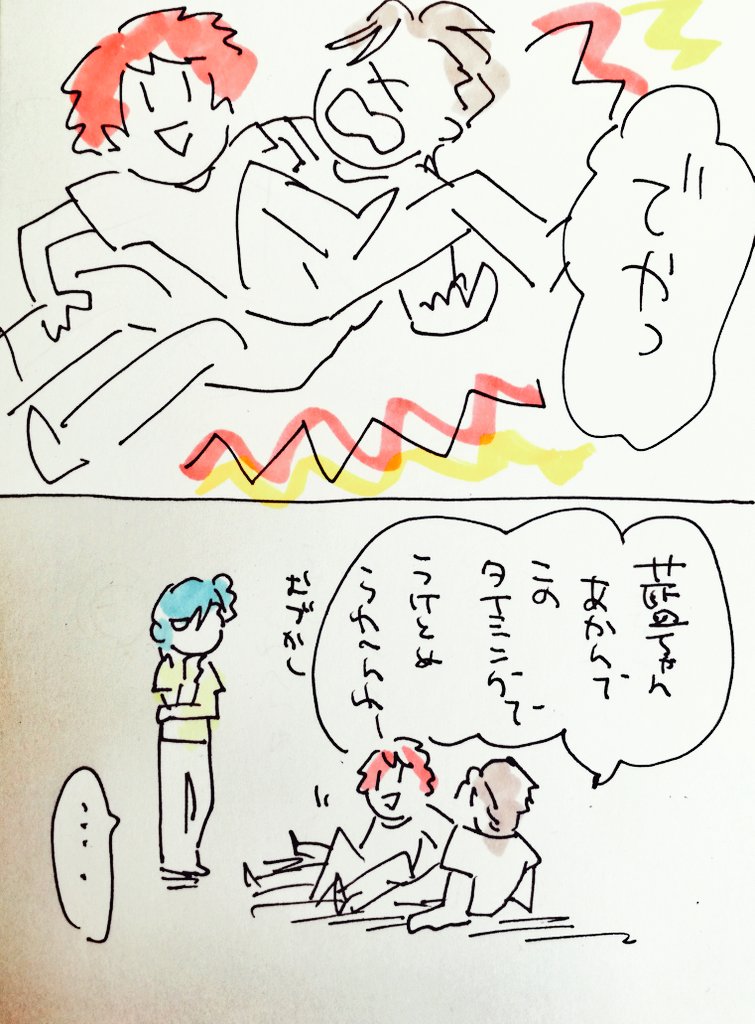 でかっ
藍ちゃん
あかんで
この
タイミングで
うけとめ
られへんわー
むずかし
・・・・